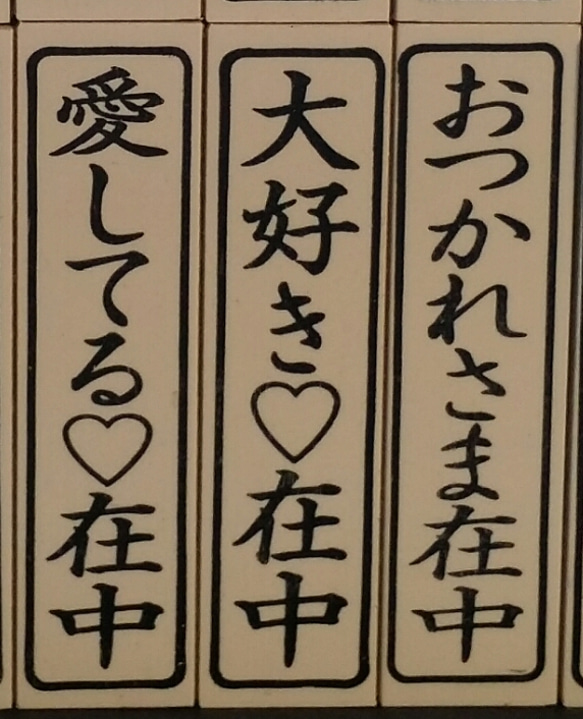 おつかれさま在中
大好き♡在中
愛してる♡在中